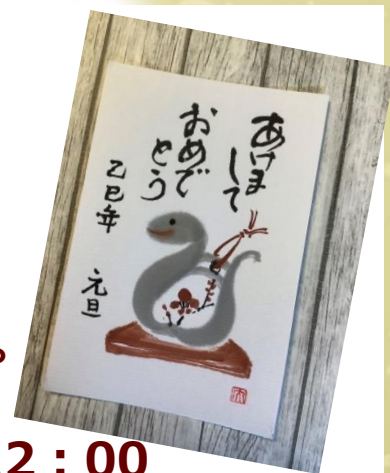 あけま
して
おめで
とう
乙巳年 元旦
2：00